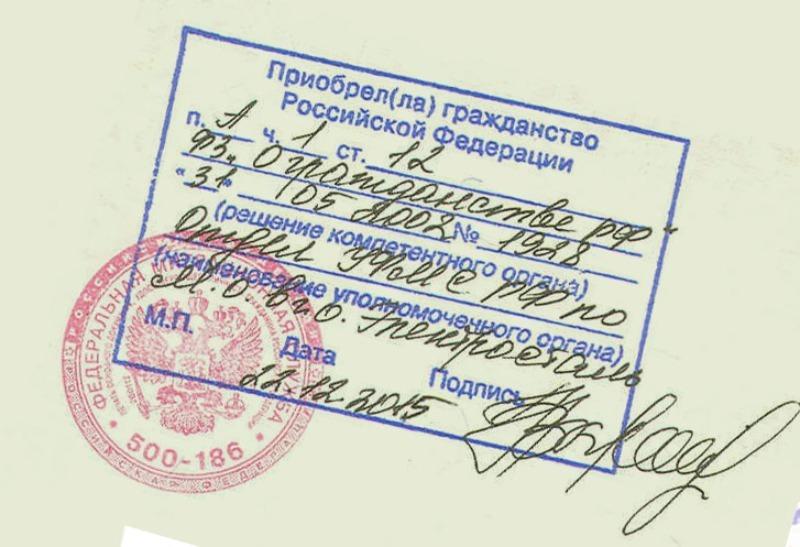 Приобрел(ла) гражданство
Российской Федерации
п. А ч. 1 ст. 12
ФЗ „О гражданстве РФ“
"31" 05 2002 № 1928
(решение компетентного органа)
Отдел УФМС РФ по
(наименование уполномоченного органа)
М.О в г.о. Электросталь
М.П.
Дата
Подпись
22.12.2015
ФЕДЕРАЛЬНАЯ МИГРАЦИОННАЯ СЛУЖБА
500-186